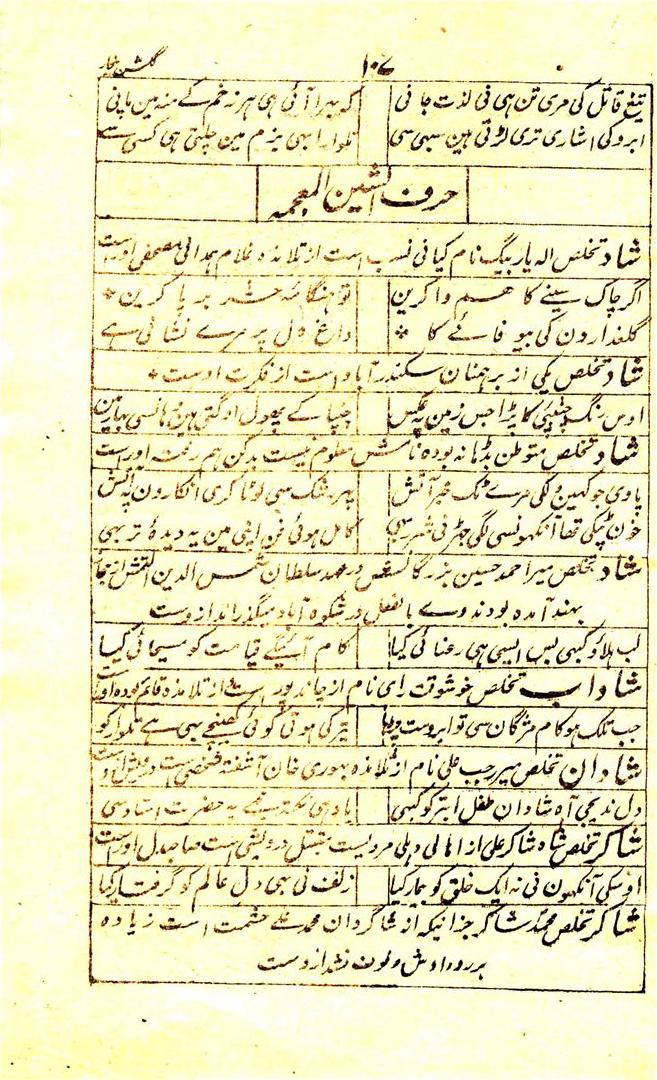 گلشن بیخار
۱۰۷
تیغ قاتل کی مری تن ہی فی لذت جانی کہ بہر آئی ہی ہر زخم کے منہ مین پانی
ابرو کی اشاری تری لڑتی ہین سبھی سی تلوار ابھی بزم مین چلتی ہی کسی سے
حرف الشین المعجمہ
شاد تخلص الہ یار بیگ نام کیانی نسب است از تلامذہ غلام ہمدانی مصحفی اوراست
اگر چاک سینے کا ہم وا کرین تو ہنگامہ حشر برپا کرین
گلعذارون کی بیوفائے کا داغ دل پر مرے نشانی ہے
شاد تخلص یکی از برہمنان سکندرآباد است از فکرت اوست
اوس رنگ چنپئی کا پڑا جس زمین پہ عکس چنپا کے پھول اوگتی ہین
شاد تخلص متوطن بڈہانہ بودہ نامش معلوم نیست
پاوی جو کہین مرے ٹک آتش پہر شک سی لوٹا کری انگارون پہ آتش
خون ٹپکی تھا آنکھونسی لگی جہڑنی شرر بھی کامل ہوئی فن اپنی مین یہ دیدۂ تر بھی
شاد تخلص میر احمد حسین بزرگانش در عہد سلطان شمس الدین التمش از
بہند آمدہ بودند وے بالفعل در شکوہ آباد میگذراند ازوست
لب ہلاؤ کبھی بس ایسی ہی رعنائی کیا کام آئیگے قیامت کو مسیحائی کیا
شاداب تخلص خوشوقت رای نام از چاندپور است از تلامذہ قائم بودہ
جب تلک ہو کام مژگان سی تو ابرو ست تیر کی ہوتی کوئی کھینچے بھی ہے تلوار کو
شادان تخلص میر رجب علی نام از تلامذہ بہوری خان آشفتہ شخصی است
دل ندیجی آہ شادان طفل ابتر کو کبھی یاد ہی نکتہ مجھے یہ حضرت استاد سی
شاکر تخلص شاہ شاکر علی از اہالی دہلی مردیست درویشی است صاحبدل اوراست
اوسکی آنکھون نی نہ ایک خلق کو بیمار کیا زلف نی بھی دل عالم کو گرفتار کیا
شاکر تخلص محمد شاکر جز اینکہ از شاگردان محمد علے حشمت است زیادہ
برروداوش وقوف نشد ازوست